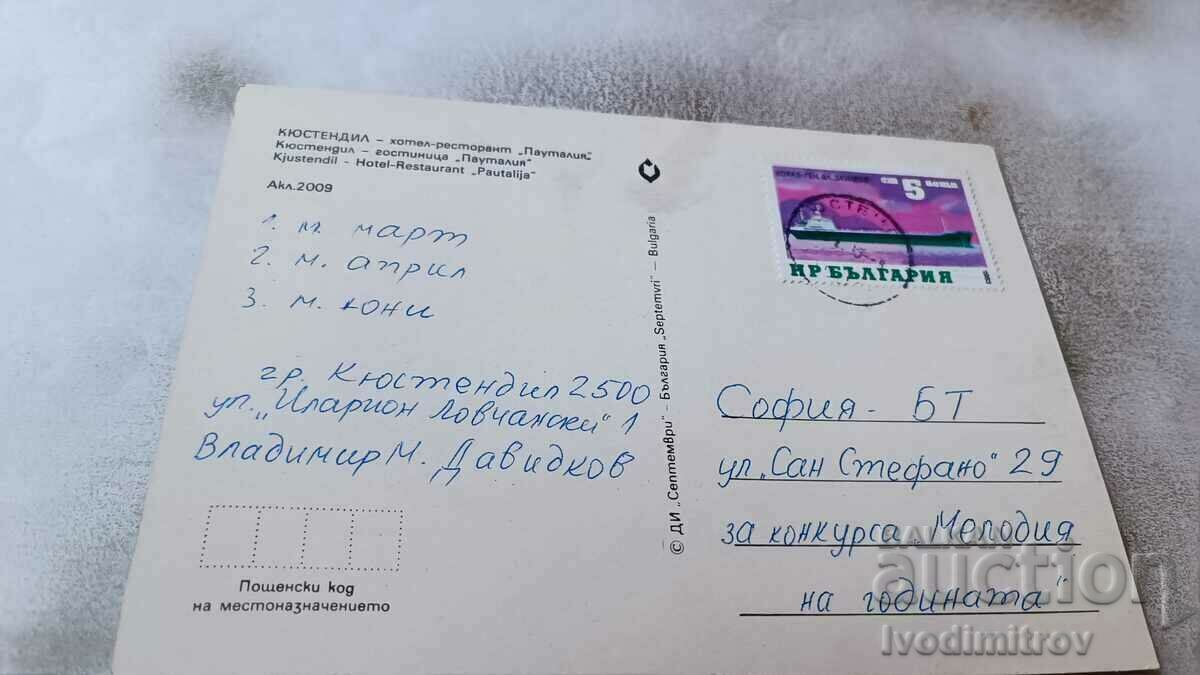 КЮСТЕНДИЛ – хотел-ресторант „Пауталия"
Кюстендил – гостиница „Пауталия"
Kjustendil - Hotel-Restaurant „Pautalija"
Акл.2009
1. м. март
2. м. април
3. м. юни
гр. Кюстендил 2500
ул. „Иларион Ловчански" 1
Владимир М. Давидков
Пощенски код
на местоназначението
© ДИ „Септември" – България „Septemvri" – Bulgaria
ст 5
НР БЪЛГАРИЯ
София - БТ
ул. „Сан Стефано" 29
за конкурса „Мелодия
на годината"
BALKAN
auction
Ivodimitrov